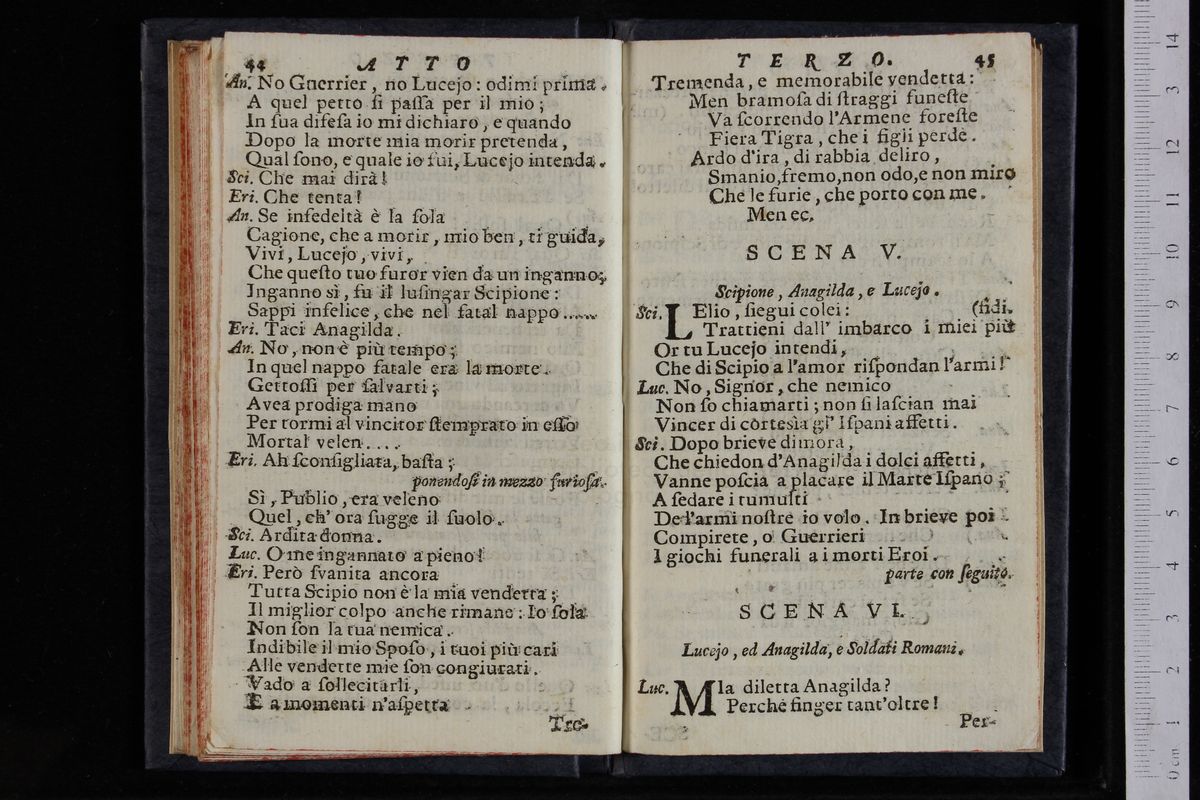 44 ATTO
An. No Guerrier, no Lucejo: odimi prima.
A quel petto ſi paſſa per il mio;
In ſua difeſa io mi dichiaro, e quando
Dopo la morte mia morir pretenda,
Qual ſono, e quale io fui, Lucejo intenda.
Sci. Che mai dirà!
Eri. Che tenta!
An. Se infedeltà è la ſola
Cagione, che a morir, mio ben, ti guida,
Vivi, Lucejo, vivi,
Che queſto tuo furor vien da un inganno;
Inganno sì, fu il luſingar Scipione:
Sappi infelice, che nel fatal nappo.....
Eri. Taci Anagilda.
An. No, non è più tempo;
In quel nappo fatale era la morte.
Gettoſſi per ſalvarti;
Avea prodiga mano
Per tormi al vincitor ſtemprato in eſſo
Mortal velen....
Eri. Ah ſconſigliata, baſta;
ponendoſi in mezzo furioſa.
Sì, Publio, era veleno
Quel, ch' ora ſugge il ſuolo.
Sci. Ardita donna.
Luc. O me ingannato a pieno!
Eri. Però ſvanita ancora
Tutta Scipio non è la mia vendetta;
Il miglior colpo anche rimane: Io ſola
Non ſon la tua nemica.
Indibile il mio Spoſo, i tuoi più cari
Alle vendette mie ſon congiurati.
Vado a ſollecitarli,
E a momenti n'aſpetta
Tre-
TERZO. 45
Tremenda, e memorabile vendetta:
Men bramoſa di ſtraggi funeſte
Va ſcorrendo l'Armene foreſte
Fiera Tigra, che i figli perdè.
Ardo d'ira, di rabbia deliro,
Smanio, fremo, non odo, e non miro
Che le furie, che porto con me.
Men ec.
SCENA V.
Scipione, Anagilda, e Lucejo.
Sci. LElio, ſiegui colei: (fidi.
Trattieni dall' imbarco i miei più
Or tu Lucejo intendi,
Che di Scipio a l'amor riſpondan l'armi!
Luc. No, Signor, che nemico
Non ſo chiamarti; non ſi laſcian mai
Vincer di cortesìa gl' Iſpani affetti.
Sci. Dopo brieve dimora,
Che chiedon d'Anagilda i dolci affetti,
Vanne poſcia a placare il Marte Iſpano;
A ſedare i tumulti
De l'armi noſtre io volo. In brieve poi
Compirete, o Guerrieri
I giochi funerali a i morti Eroi.
parte con ſeguito.
SCENA VI.
Lucejo, ed Anagilda, e Soldati Romani.
Luc. MIa diletta Anagilda?
Perchè finger tant'oltre!
Per-
0 cm 1 2 3 4 5 6 7 8 9 10 11 12 13 14